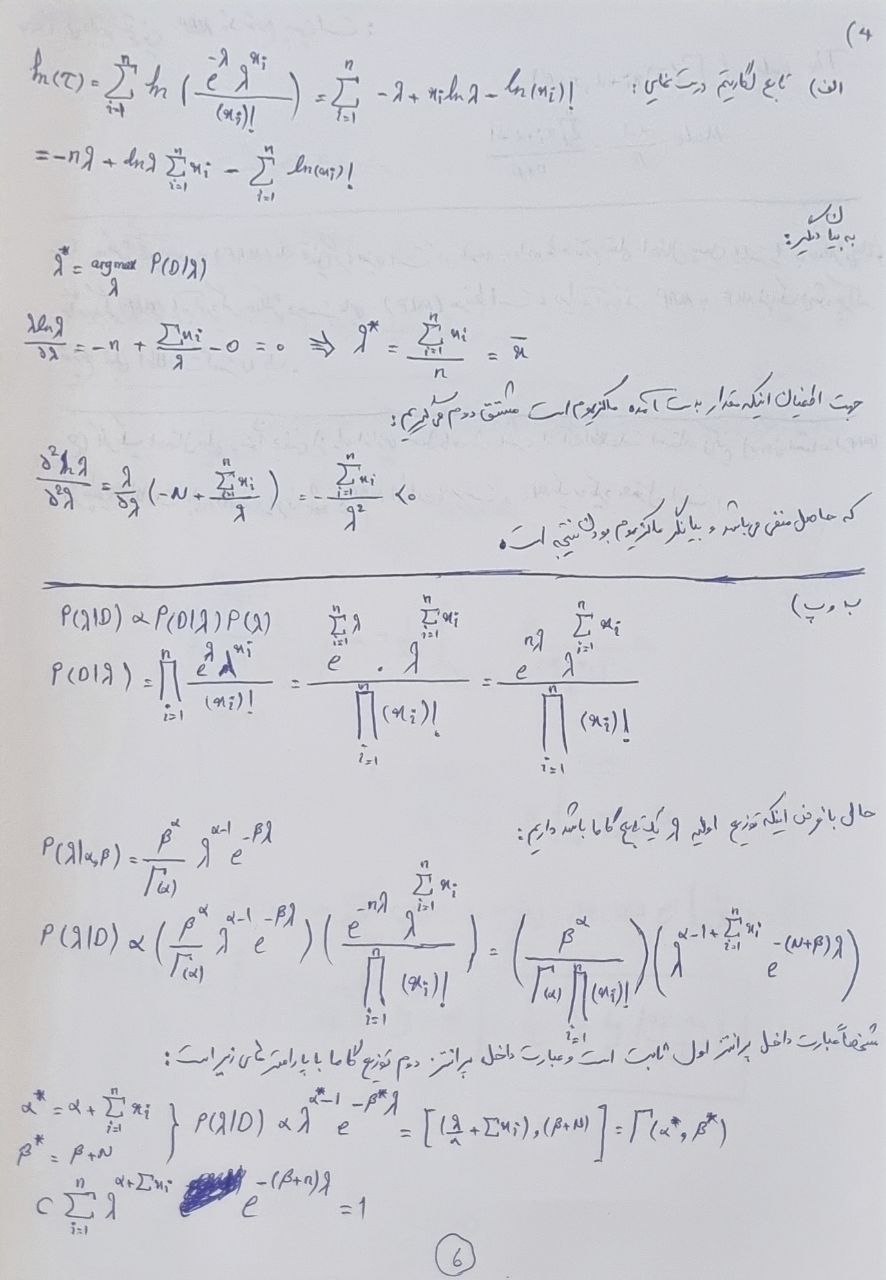 (4
الف) تابع لگاریتم درست نمایی: ln(τ) = Σ_{i=1}^{n} ln( e^{-λ} λ^{x_i} / (x_i)! ) = Σ_{i=1}^{n} -λ + x_i lnλ - ln(x_i)!
= -nλ + lnλ Σ_{i=1}^{n} x_i - Σ_{i=1}^{n} ln(x_i)!
به بیان دیگر:
λ* = argmax_λ P(D|λ)
∂lnλ/∂λ = -n + Σx_i/λ - 0 = 0 ⇒ λ* = Σ_{i=1}^{n} x_i / n = x̄
جهت اطمینان اینکه مقدار بدست آمده ماکزیموم است مشتق دوم می‌گیریم:
∂²lnλ/∂²λ = λ/∂λ (-N + Σ_{i=1}^{n} x_i / λ) = - Σ_{i=1}^{n} x_i / λ² < 0
که حاصل منفی می‌باشد و بیانگر ماکزیموم بودن نتیجه است.
ب و پ)
P(λ|D) ∝ P(D|λ) P(λ)
P(D|λ) = Π_{i=1}^{n} e^{λ} λ^{x_i} / (x_i)! = e^{Σ_{i=1}^{n} λ} . λ^{Σ_{i=1}^{n} x_i} / Π_{i=1}^{n} (x_i)! = e^{nλ} λ^{Σ_{i=1}^{n} x_i} / Π_{i=1}^{n} (x_i)!
حال با فرض اینکه توزیع اولیه λ یک تابع گاما باشد داریم:
P(λ|α,β) = β^α / Γ(α) λ^{α-1} e^{-βλ}
P(λ|D) ∝ ( β^α / Γ(α) λ^{α-1} e^{-βλ} ) ( e^{-nλ} λ^{Σ_{i=1}^{n} x_i} / Π_{i=1}^{n} (x_i)! ) = ( β^α / Γ(α) Π_{i=1}^{n} (x_i)! ) ( λ^{α-1+Σ_{i=1}^{n} x_i} e^{-(N+β)λ} )
شخصاً عبارت داخل پرانتز اول ثابت است و عبارت داخل پرانتز دوم توزیع گاما با پارامترهای زیر است:
α* = α + Σ_{i=1}^{n} x_i
β* = β + N } P(λ|D) ∝ λ^{α*-1} e^{-β*λ} = [(λ/n + Σx_i), (β+N)] = Γ(α*, β*)
C Σ_{i=1}^{n} λ^{α+Σx_i} e^{-(β+n)λ} = 1
6